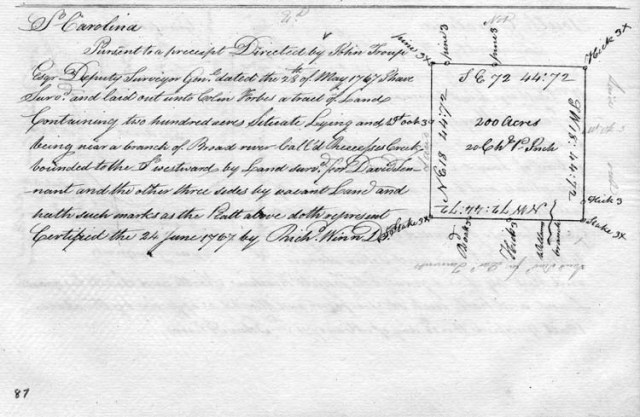 So Carolina
Pursent to a precept Directed by John Troup
Esqr Deputy Surveyor Genl dated the 28th of May 1767 I have
Survd and laid out unto Colin Forbes a tract of Land
Containing two hundred acres Situate Lying and
being near a branch of Broad river call'd Receeses Creek
bounded to the So westward by Land survd for David
nant and the other three sedes by vacant Land and
hath such marks as the Platt above doth represent
Certified the 24 June 1767 by Richd Winn D.S.
pine 3X
pine 3
pine 3
Hick 3X
S E 72 44:72
200 Acres
20 Chs Pr Inch
N E 18 44:72
S W 18:44:72
N W 72:44:72
Hick 3
Stake 3X
Stake 3X
Hick 3
branch
87